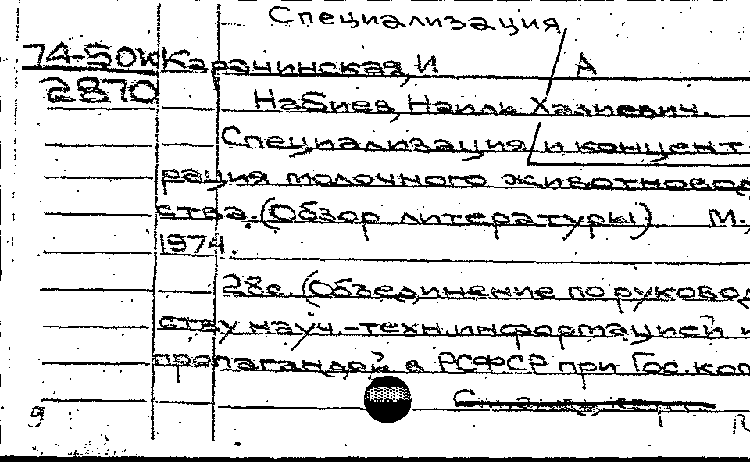 Специализация
74-50к Карачинская, И А
2870
Набиев, Наиль Хазиевич.
Специализация и концент-
рация молочного животновод
ства. (Обзор литературы) М.,
1974.
28с. (Объединение по руковод
ству науч.-техн. информацией и
пропагандой в РСФСР при Гос. ком
9